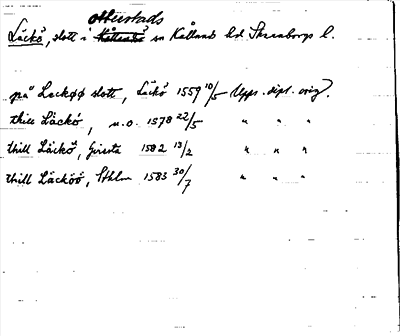 Otterstads
Läckö, slott i Kållands sn Kållands hd Skaraborgs l.
på Leckøø slott, Läckö 1559 10/5 Upps. dipl. orig.
thill Läckö, u.o. 1578 22/5 " " "
thill Läckö, Girsta 1582 13/2 " " "
thill Läcköö, Sthlm 1583 30/7 " " "